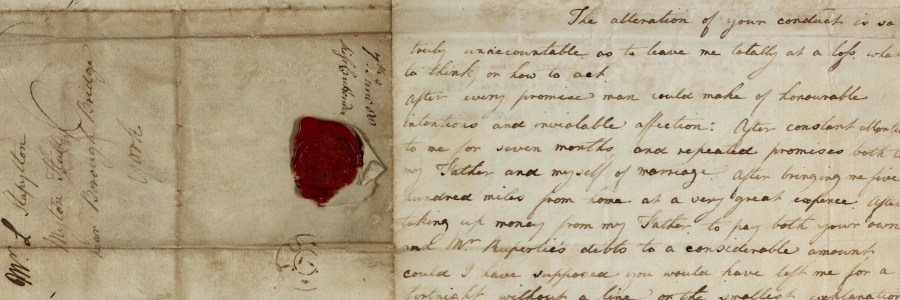 Mr. L Stapylton
Myton Hall
near Brough Bridge
York
The alteration of your conduct is so
truly unaccountable as to leave me totally at a loss what
to think, or how to act.
After every promise man could make of honourable
intentions and inviolable affection: After constant attent
to me for seven months and repeated promises both t
my Father and myself of marriage. After bringing me five
hundred miles from home at a very great expence. After
taking up money from my Father to pay both your own
and Mr Ruperties debts to a considerable amount
could I have supposed you would have left me for a
fortnight without a line or the smallest explanation